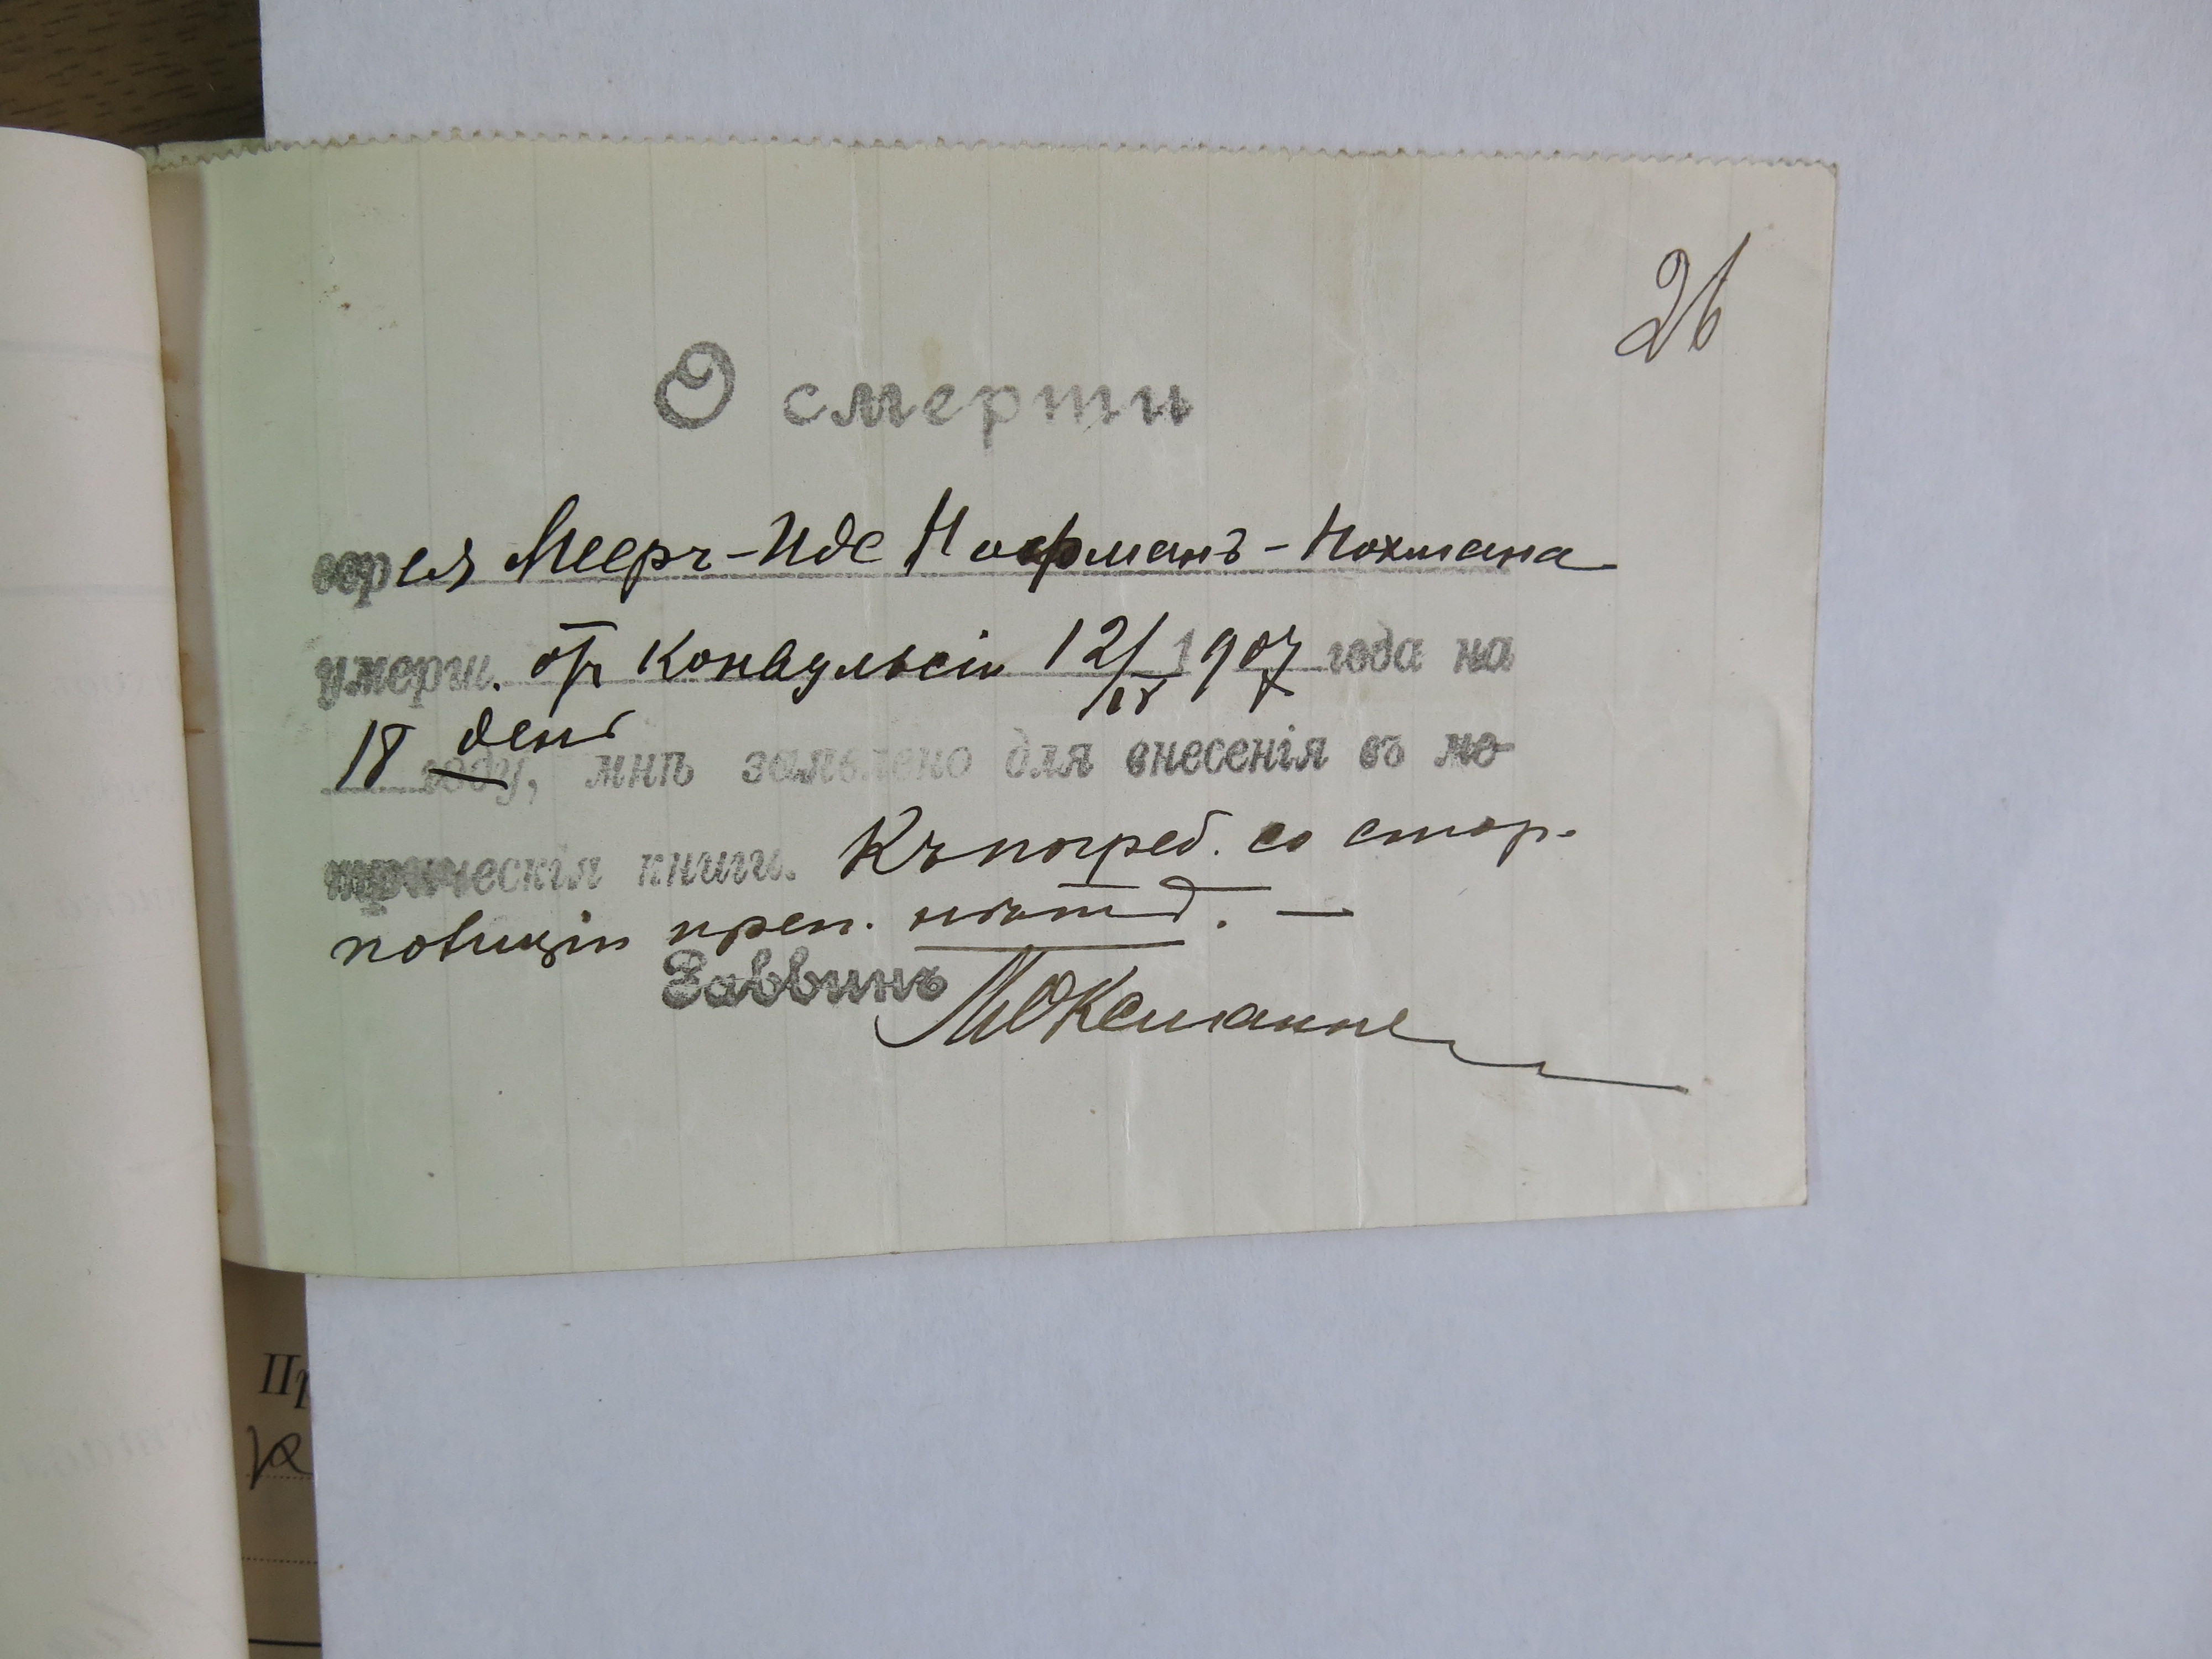 26
О смерти
еврея Мееръ-Иде Нафманъ-Нохмана
умерш. отъ конвульсiи 12/IX 1907 года на
18 день году, мнѣ заявлено для внесенiя въ ме-
трическiя книги. Къ погреб. со стор.
полицiи преп. нѣтъ. —
Раввинъ
Пр